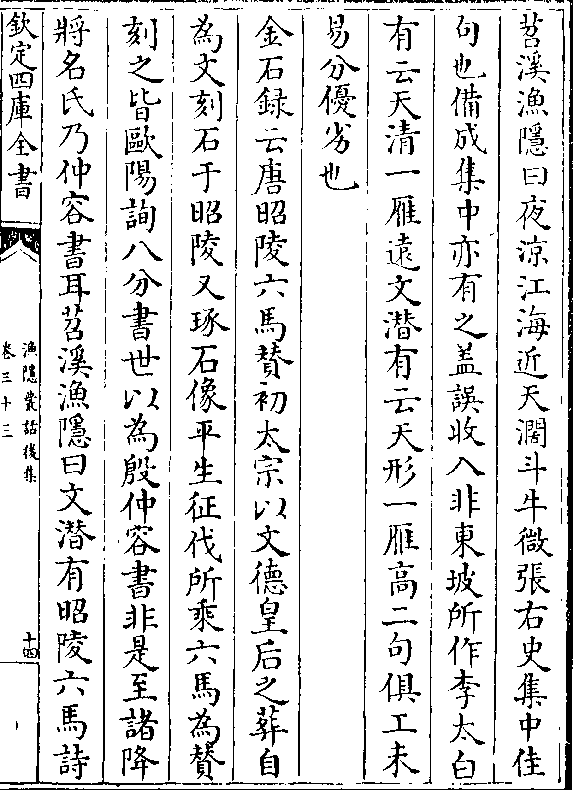 苕溪漁隱曰夜涼江海近天濶斗牛微張右史集中佳
句也備成集中亦有之盖誤收入非東坡所作李太白
有云天清一雁遠文潜有云天形一雁高二句俱工未
易分優劣也
金石録云唐昭陵六馬賛初太宗以文德皇后之葬自
為文刻石于昭陵又琢石像平生征伐所乘六馬為賛
刻之皆歐陽詢八分書世以為殷仲容書非是至諸降
將名氏乃仲容書耳苕溪漁隱曰文潜有昭陵六馬詩
欽定四庫全書
漁隱叢話後集
卷三十三
十四